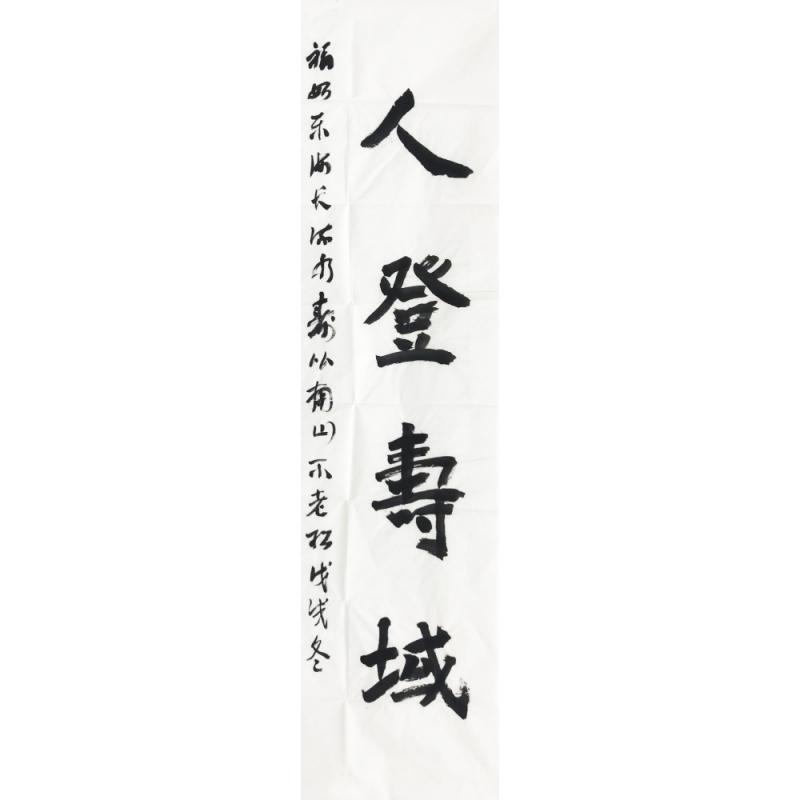 人登壽域
福如东海长流水寿比南山不老松戊戌冬